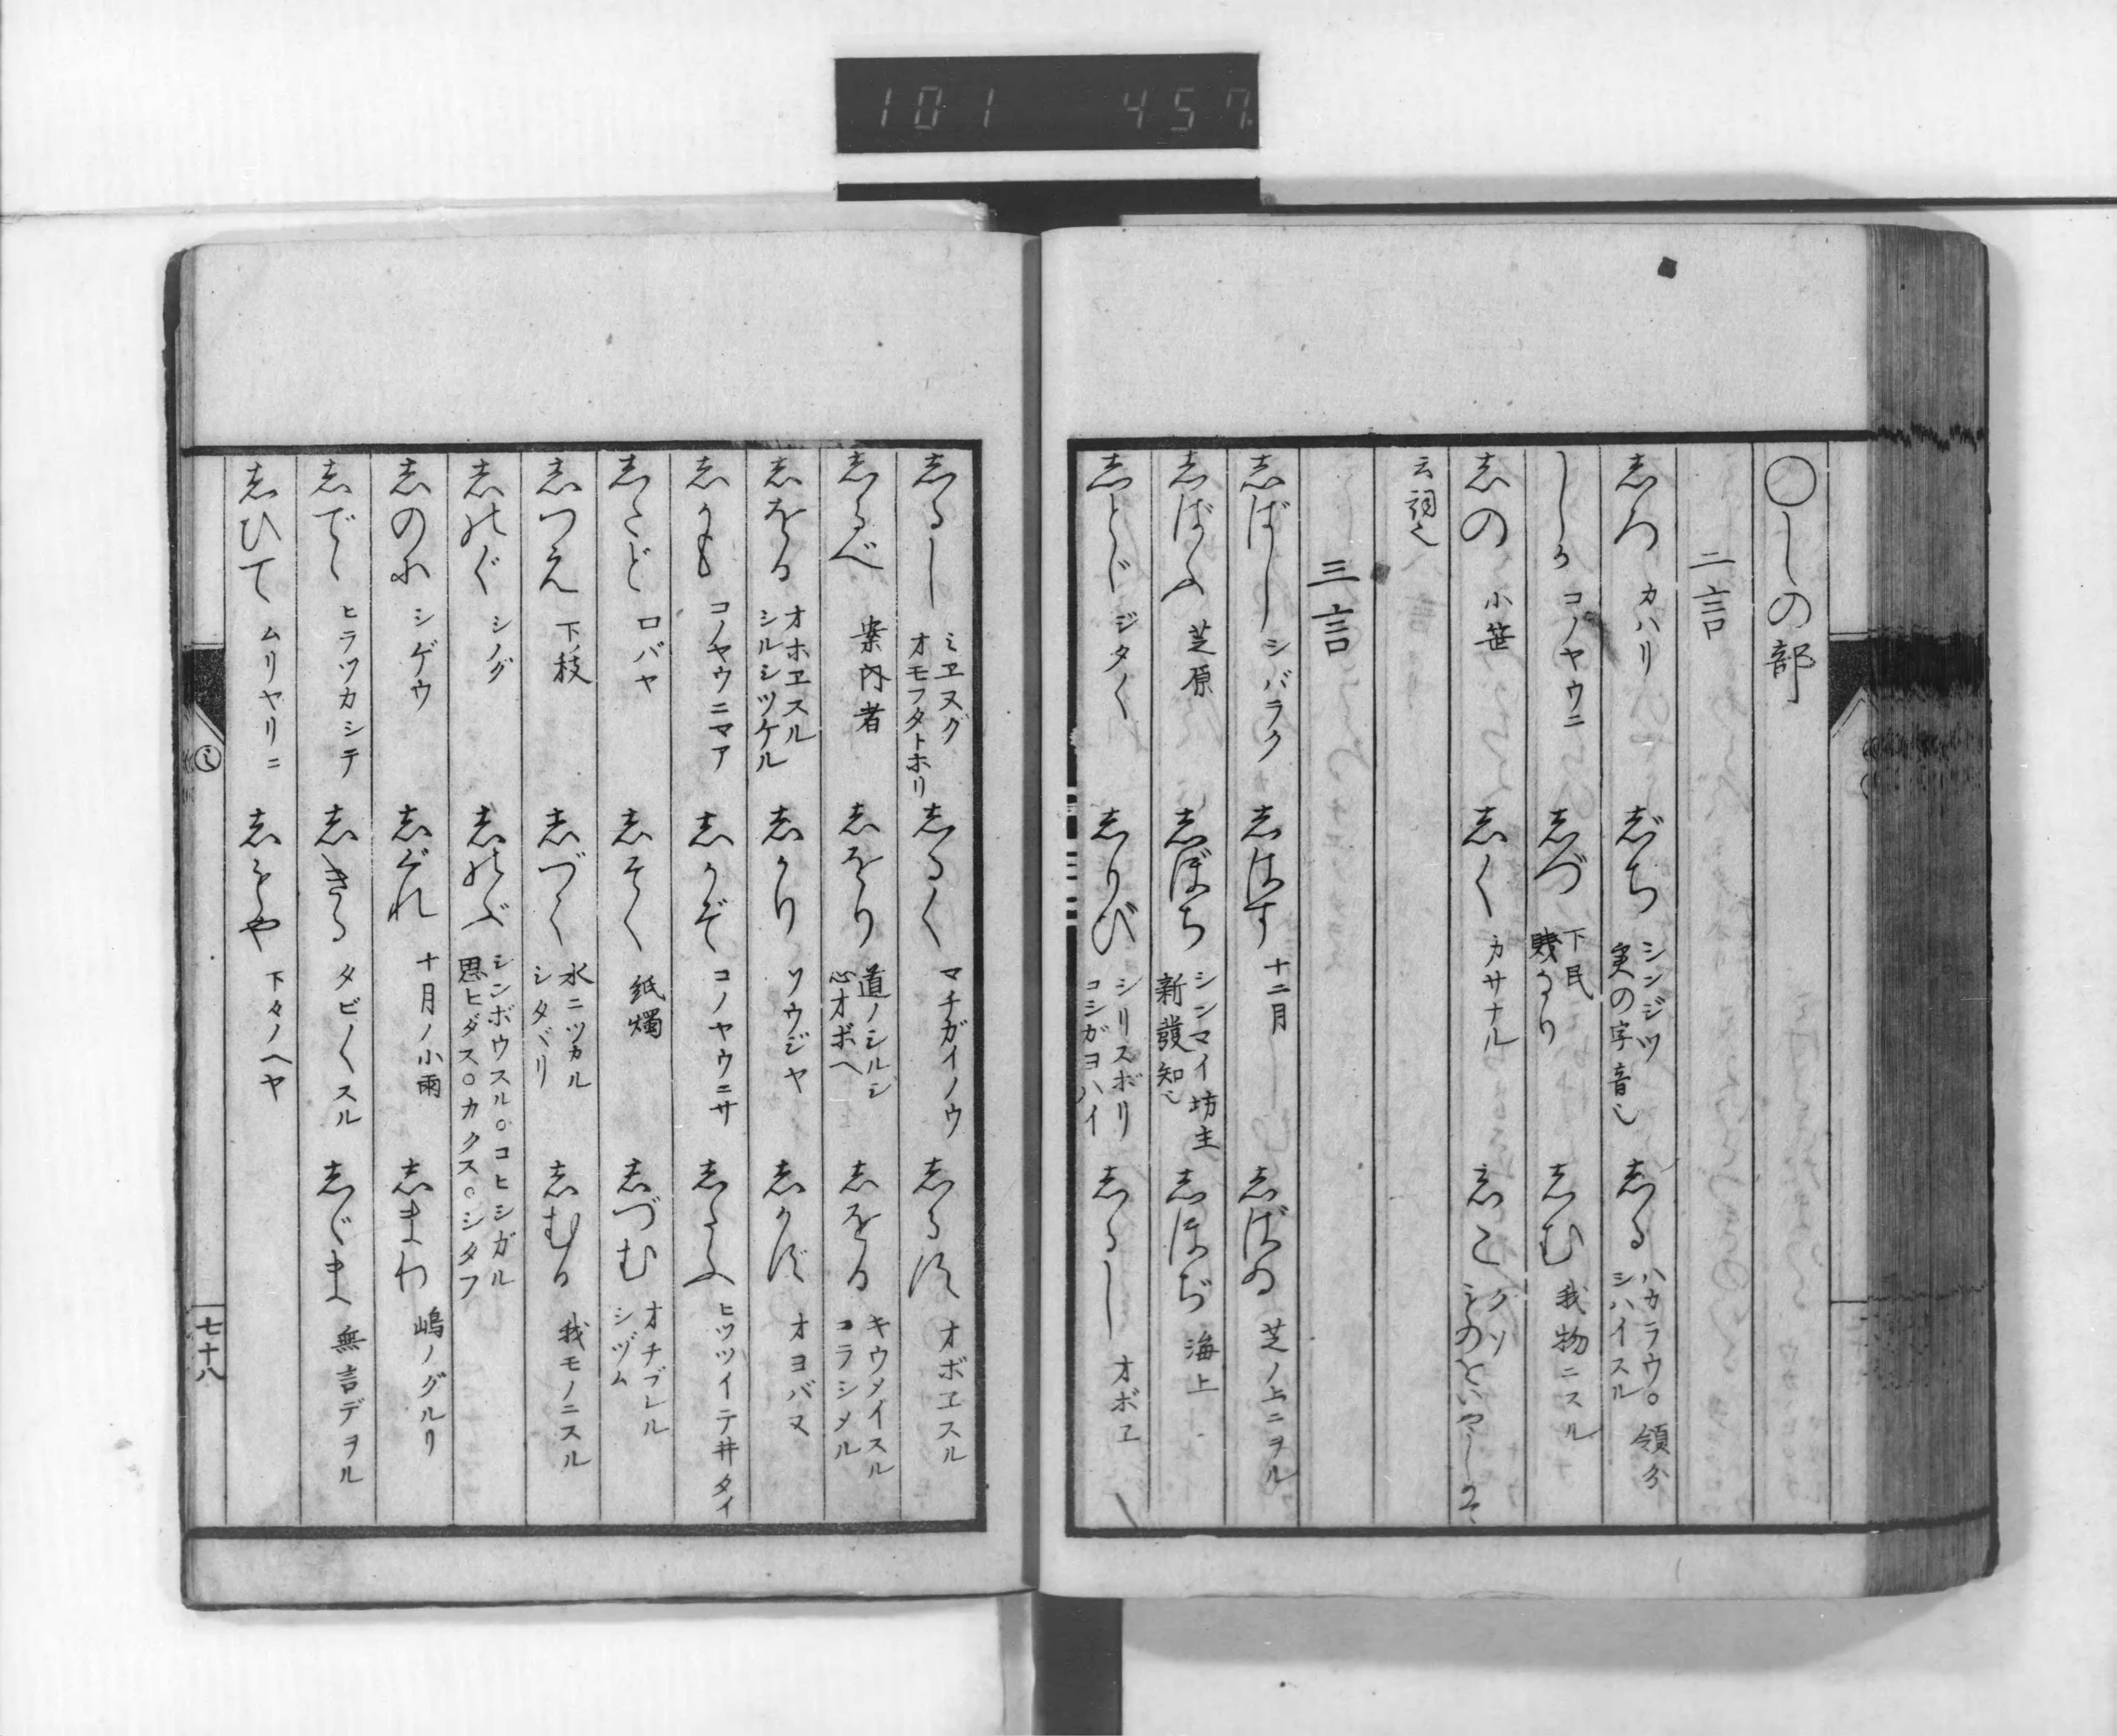 101 457
〇しの部
二言
志ろ カハリ 志゛ち シンジツ 実の字音也 志る ハカラウ。領分 シハイスル
しか コノヤウニ 志づ 下民 賤かり 志む 我物ニスル
志の 小笹 志く カサナル 志こ クソ
云詞也
三言
志ばし シバラク 志はす 十二月 志ばゐ 芝ノ上ニヲル
志ばふ 芝原 志ぼち シンマイ坊主 新發知也 志ほぢ 海上
志とゞ ジタ〱 志りび シリスボリ コシガヨハイ 志るし オボヱ
志るし ミヱヌグ オモフタトホリ 志るく マチガイノウ 志るす オボヱスル
志るべ 案内者 志をり 道ノシルシ 心オボヘ 志をる キウメイスル コラシメル
志をる オホヱスル シルシツケル 志かり ソウジヤ 志かず オヨバヌ
志かも コノヤウニマア 志かぞ コノヤウニサ 志たふ ヒツツイテ井タイ
志とど ロバヤ 志そく 紙燭 志づむ オチブレル シヅム
志つえ 下ノ枝 志づく 水ニツカル シタヾリ 志むる 我モノニスル
志のぐ シノグ 志のぶ シンボウスル。コヒシガル 思ヒダス。カクス。シタフ
志のに シゲウ 志ぐれ 十月ノ小雨 志まわ 嶋ノグルリ
志でゝ ヒラツカシテ 志きる タビ〱スル 志ゞま 無言デヲル
志ひて ムリヤリニ 志をや 下々ノヘヤ
し
七十八